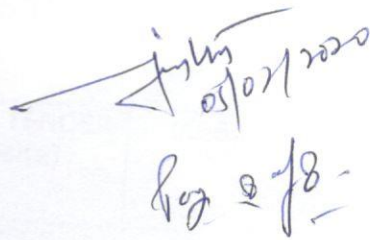 05/02/2020
Pag 8 of 8